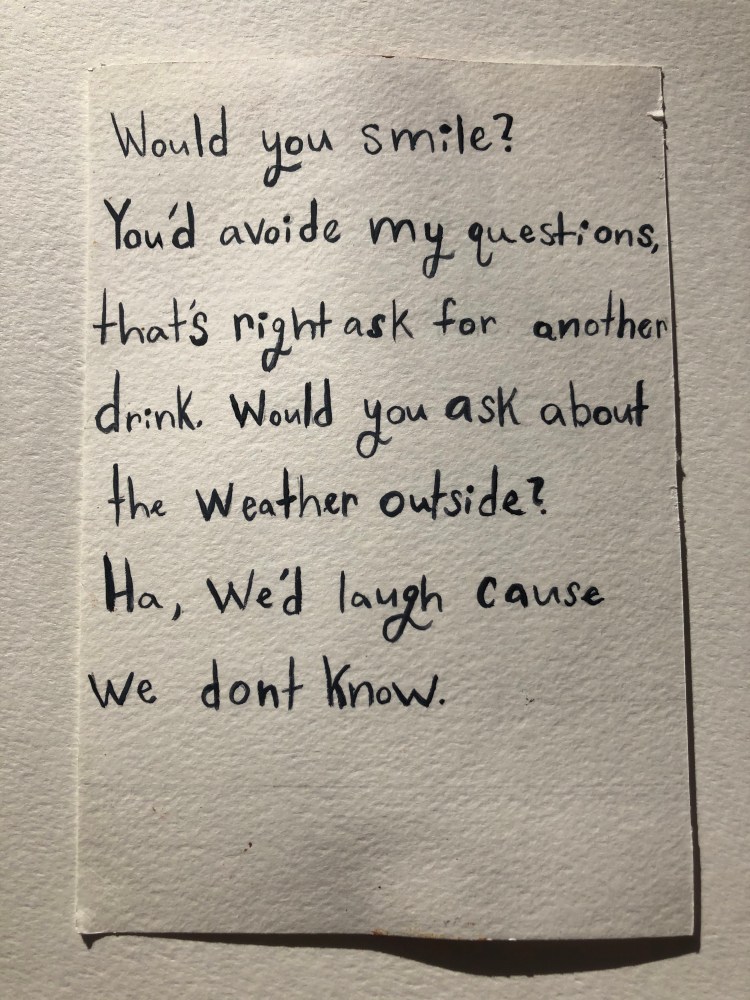 Would you smile?
You'd avoide my questions,
that's right ask for another
drink. Would you ask about
the weather outside?
Ha, We'd laugh cause
we dont know.